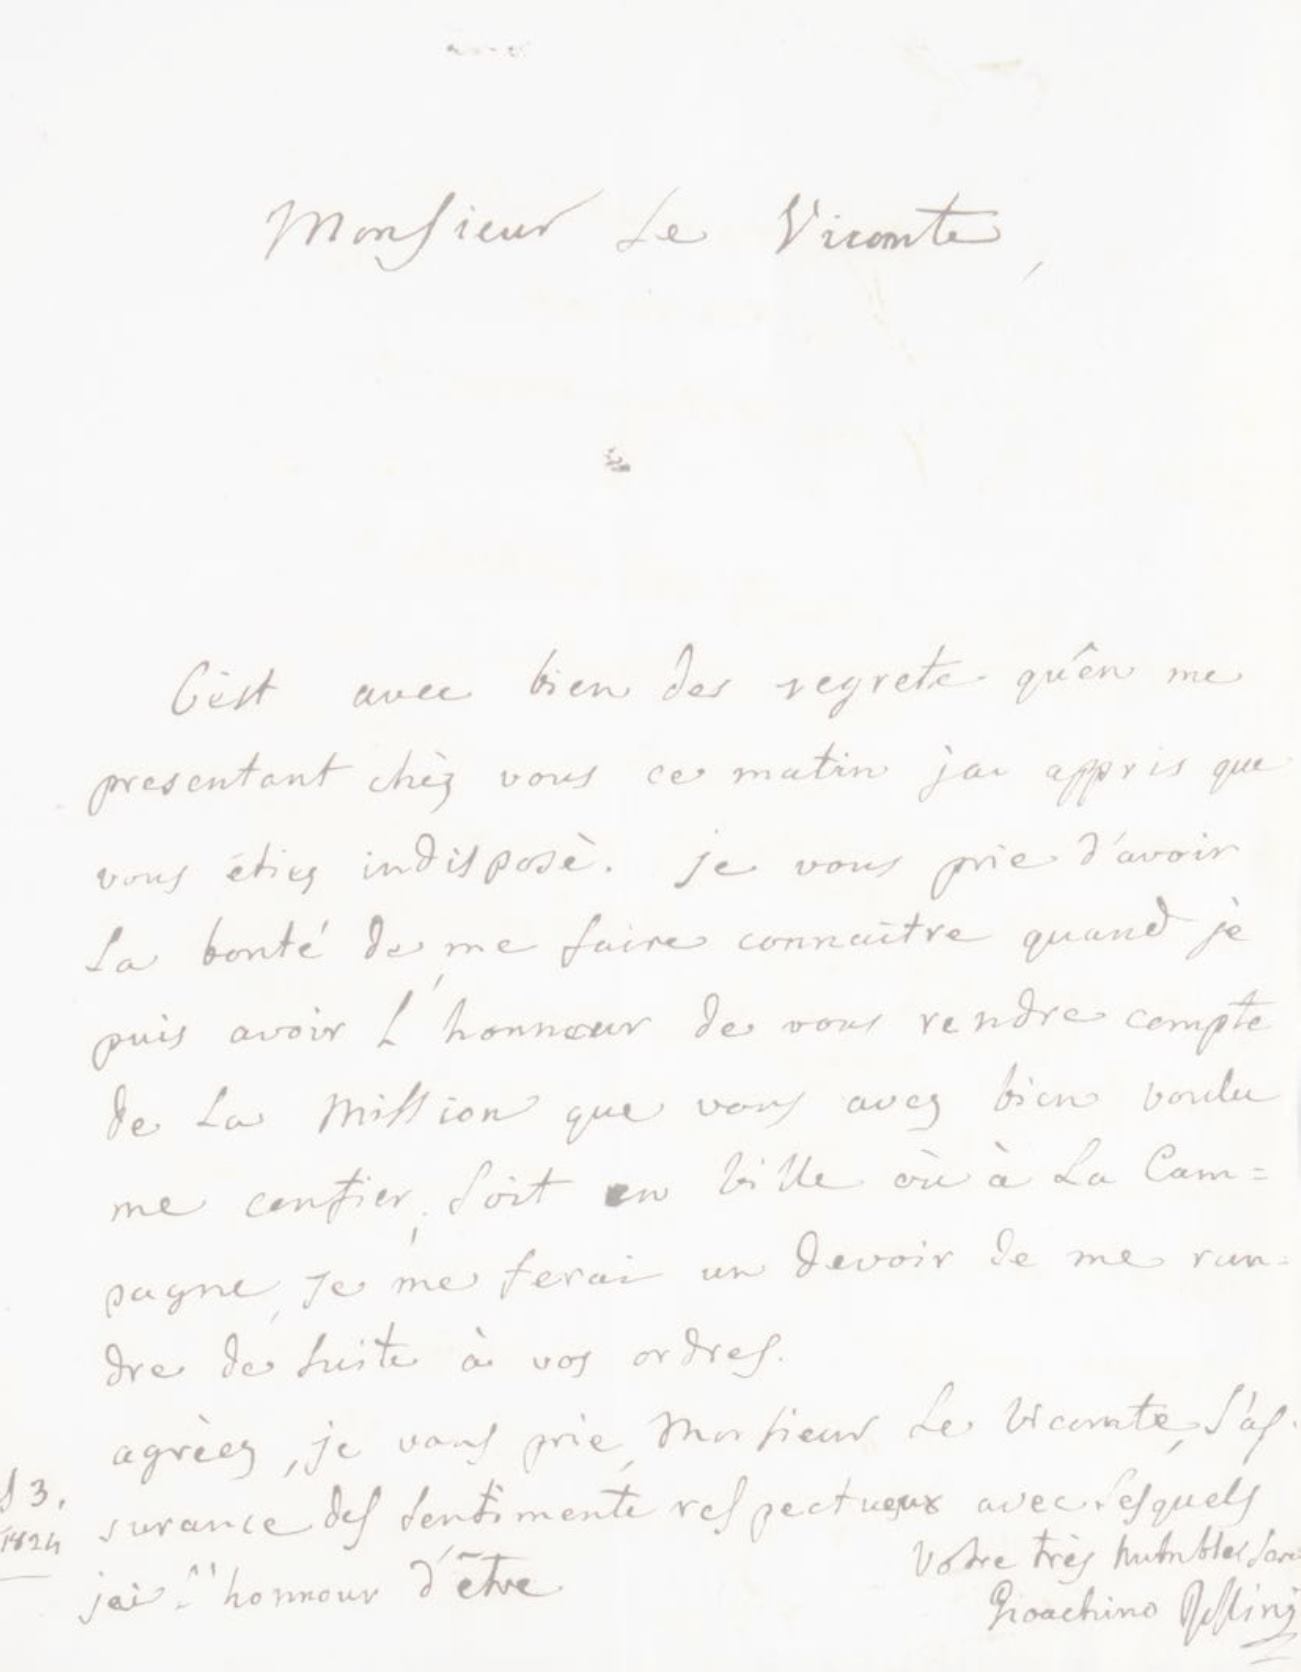 Monsieur Le Vicomte,
C'èst avec bien des regrets qu'en me
presentant chèz vous ce matin j'ai appris que
vous étiez indisposè. je vous prie d'avoir
La bonté de me faire connaitre quand jè
puis avoir L'honneur de vous rendre compte
de La Mission que vous avez bien voulu
me confier, soit en Ville où à La Cam=
pagne, je me ferai un devoir de me ran=
dre de suite à vos ordres.
agrèez, je vous prie, Monsieur Le Vicomte, l'as
surance des sentiments respectueux avec lesquels
j'ai l'honnour d'être
3.
1824
Votre très humbles Serv
Gioachino Rossini